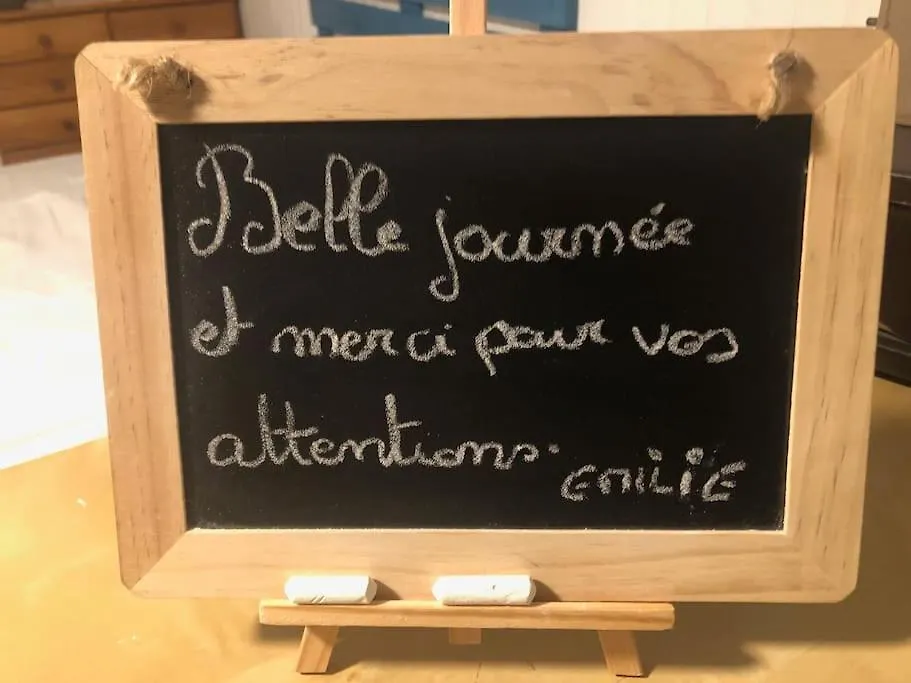 Belle journée
et merci pour vos
attentions.
EMILIE